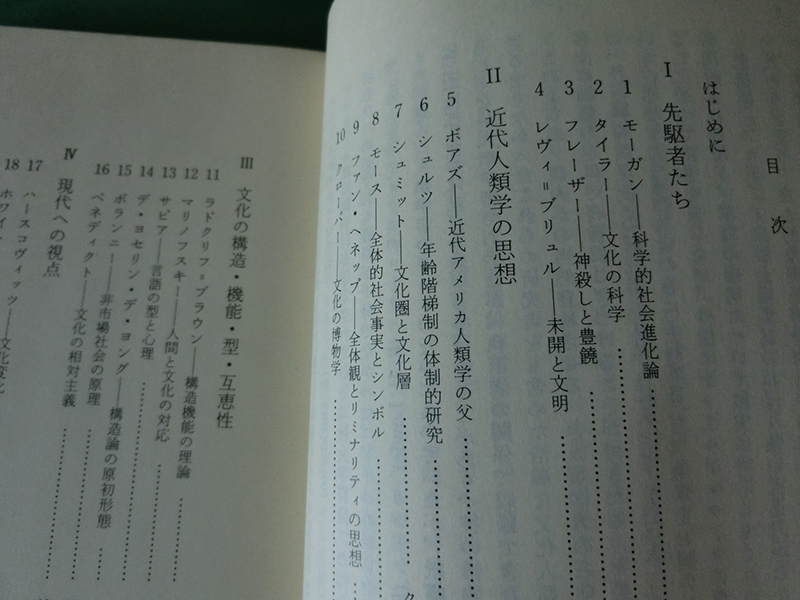 目 次
はじめに
I 先駆者たち
1 モーガン――科学的社会進化論
2 タイラー――文化の科学
3 フレーザー――神殺しと豊饒
4 レヴィ＝ブリュル――未開と文明
II 近代人類学の思想
5 ボアズ――近代アメリカ人類学の父
6 シュルツ――年齢階梯制の体制的研究
7 シュミット――文化圏と文化層
8 モース――全体的社会事実とシンボル
9 ファン・ヘネップ――全体観とリミナリティの思想
10 クローバー――文化の博物学
III 文化の構造・機能・型・互恵性
11 ラドクリフ＝ブラウン――構造機能の理論
12 マリノフスキー――人間と文化の対応
13 サピア――言語の型と心理
14 デ・ヨセリン・デ・ヨング――構造論の原初形態
15 ポランニー――非市場社会の原理
16 ベネディクト――文化の相対主義
IV 現代への視点
17 ハースコヴィッツ――文化変化
18 ホワイ